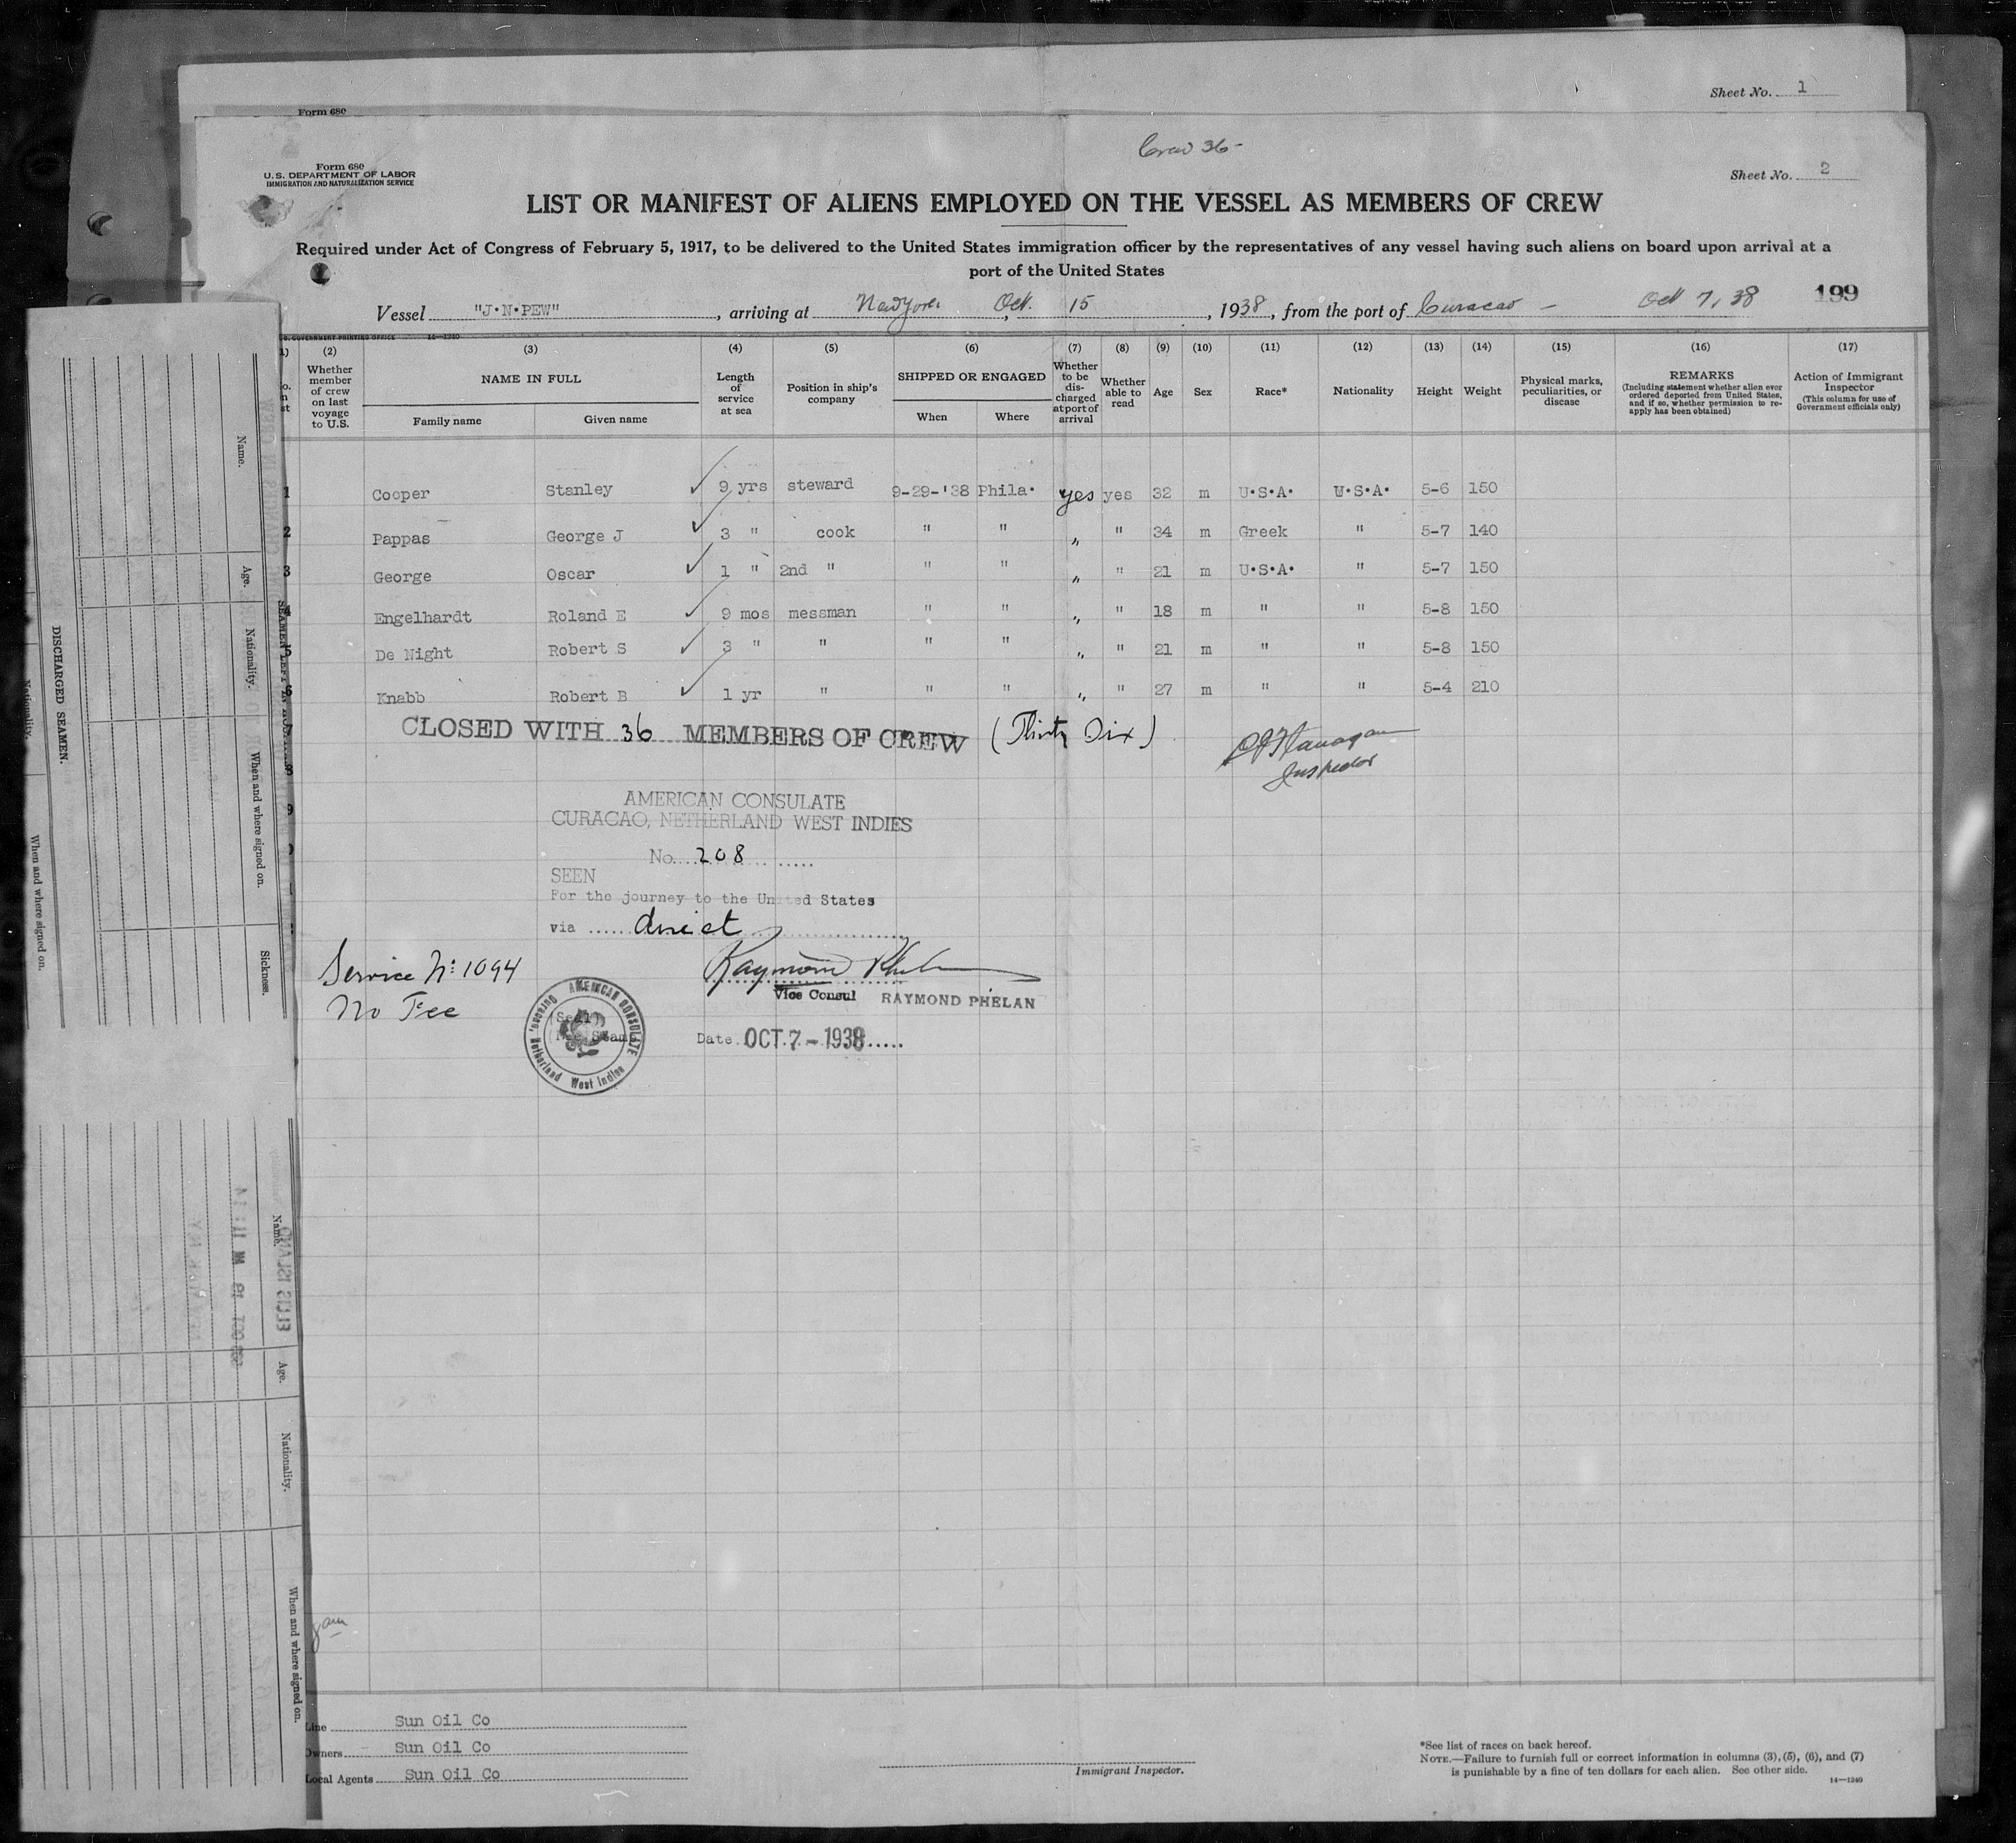 Sheet No. 1
Form 680
Crew 36-
Form 680
U.S. DEPARTMENT OF LABOR
IMMIGRATION AND NATURALIZATION SERVICE
Sheet No. 2
LIST OR MANIFEST OF ALIENS EMPLOYED ON THE VESSEL AS MEMBERS OF CREW
Required under Act of Congress of February 5, 1917, to be delivered to the United States immigration officer by the representatives of any vessel having such aliens on board upon arrival at a
port of the United States
Vessel "J.N.PEW", arriving at New York, Oct. 15, 1938, from the port of Curacao - Oct 7, 38 199
U.S. GOVERNMENT PRINTING OFFICE 14-1240
(2) (3) (4) (5) (6) (7) (8) (9) (10) (11) (12) (13) (14) (15) (16) (17)
Whether member of crew on last voyage to U.S.
NAME IN FULL
Family name Given name
Length of service at sea
Position in ship's company
SHIPPED OR ENGAGED
When Where
Whether to be discharged at port of arrival
Whether able to read
Age
Sex
Race*
Nationality
Height
Weight
Physical marks, peculiarities, or disease
REMARKS
(Including statement whether alien ever ordered deported from United States, and if so, whether permission to reapply has been obtained)
Action of Immigrant Inspector
(This column for use of Government officials only)
1 Cooper Stanley 9 yrs steward 9-29-'38 Phila. yes yes 32 m U.S.A. U.S.A. 5-6 150
2 Pappas George J 3 " cook " " " " 34 m Greek " 5-7 140
3 George Oscar 1 " 2nd " " " " " 21 m U.S.A. " 5-7 150
4 Engelhardt Roland E 9 mos messman " " " " 18 m " " 5-8 150
5 De Night Robert S 3 " " " " " " 21 m " " 5-8 150
6 Knabb Robert B 1 yr " " " " " 27 m " " 5-4 210
CLOSED WITH 36 MEMBERS OF CREW (Thirty Six)
Flanagan
Inspector
AMERICAN CONSULATE
CURACAO, NETHERLAND WEST INDIES
No. 208
SEEN
For the journey to the United States
via direct
Service No: 1094
No Fee
Raymond Phelan
Vice Consul RAYMOND PHELAN
AMERICAN CONSULATE
Curacao, Netherland West Indies
(Seal)
Date OCT. 7 - 1938
Line Sun Oil Co
Owners Sun Oil Co
Local Agents Sun Oil Co
Immigrant Inspector.
*See list of races on back hereof.
NOTE.—Failure to furnish full or correct information in columns (3), (5), (6), and (7)
is punishable by a fine of ten dollars for each alien. See other side.
14—1240
DISCHARGED SEAMEN.
Name.
Age.
Nationality.
When and where signed on.
Sickness.
Nationality.
When and where signed on.
Name.
Age.
Nationality.
When and where signed on.
ELLIS ISLAND